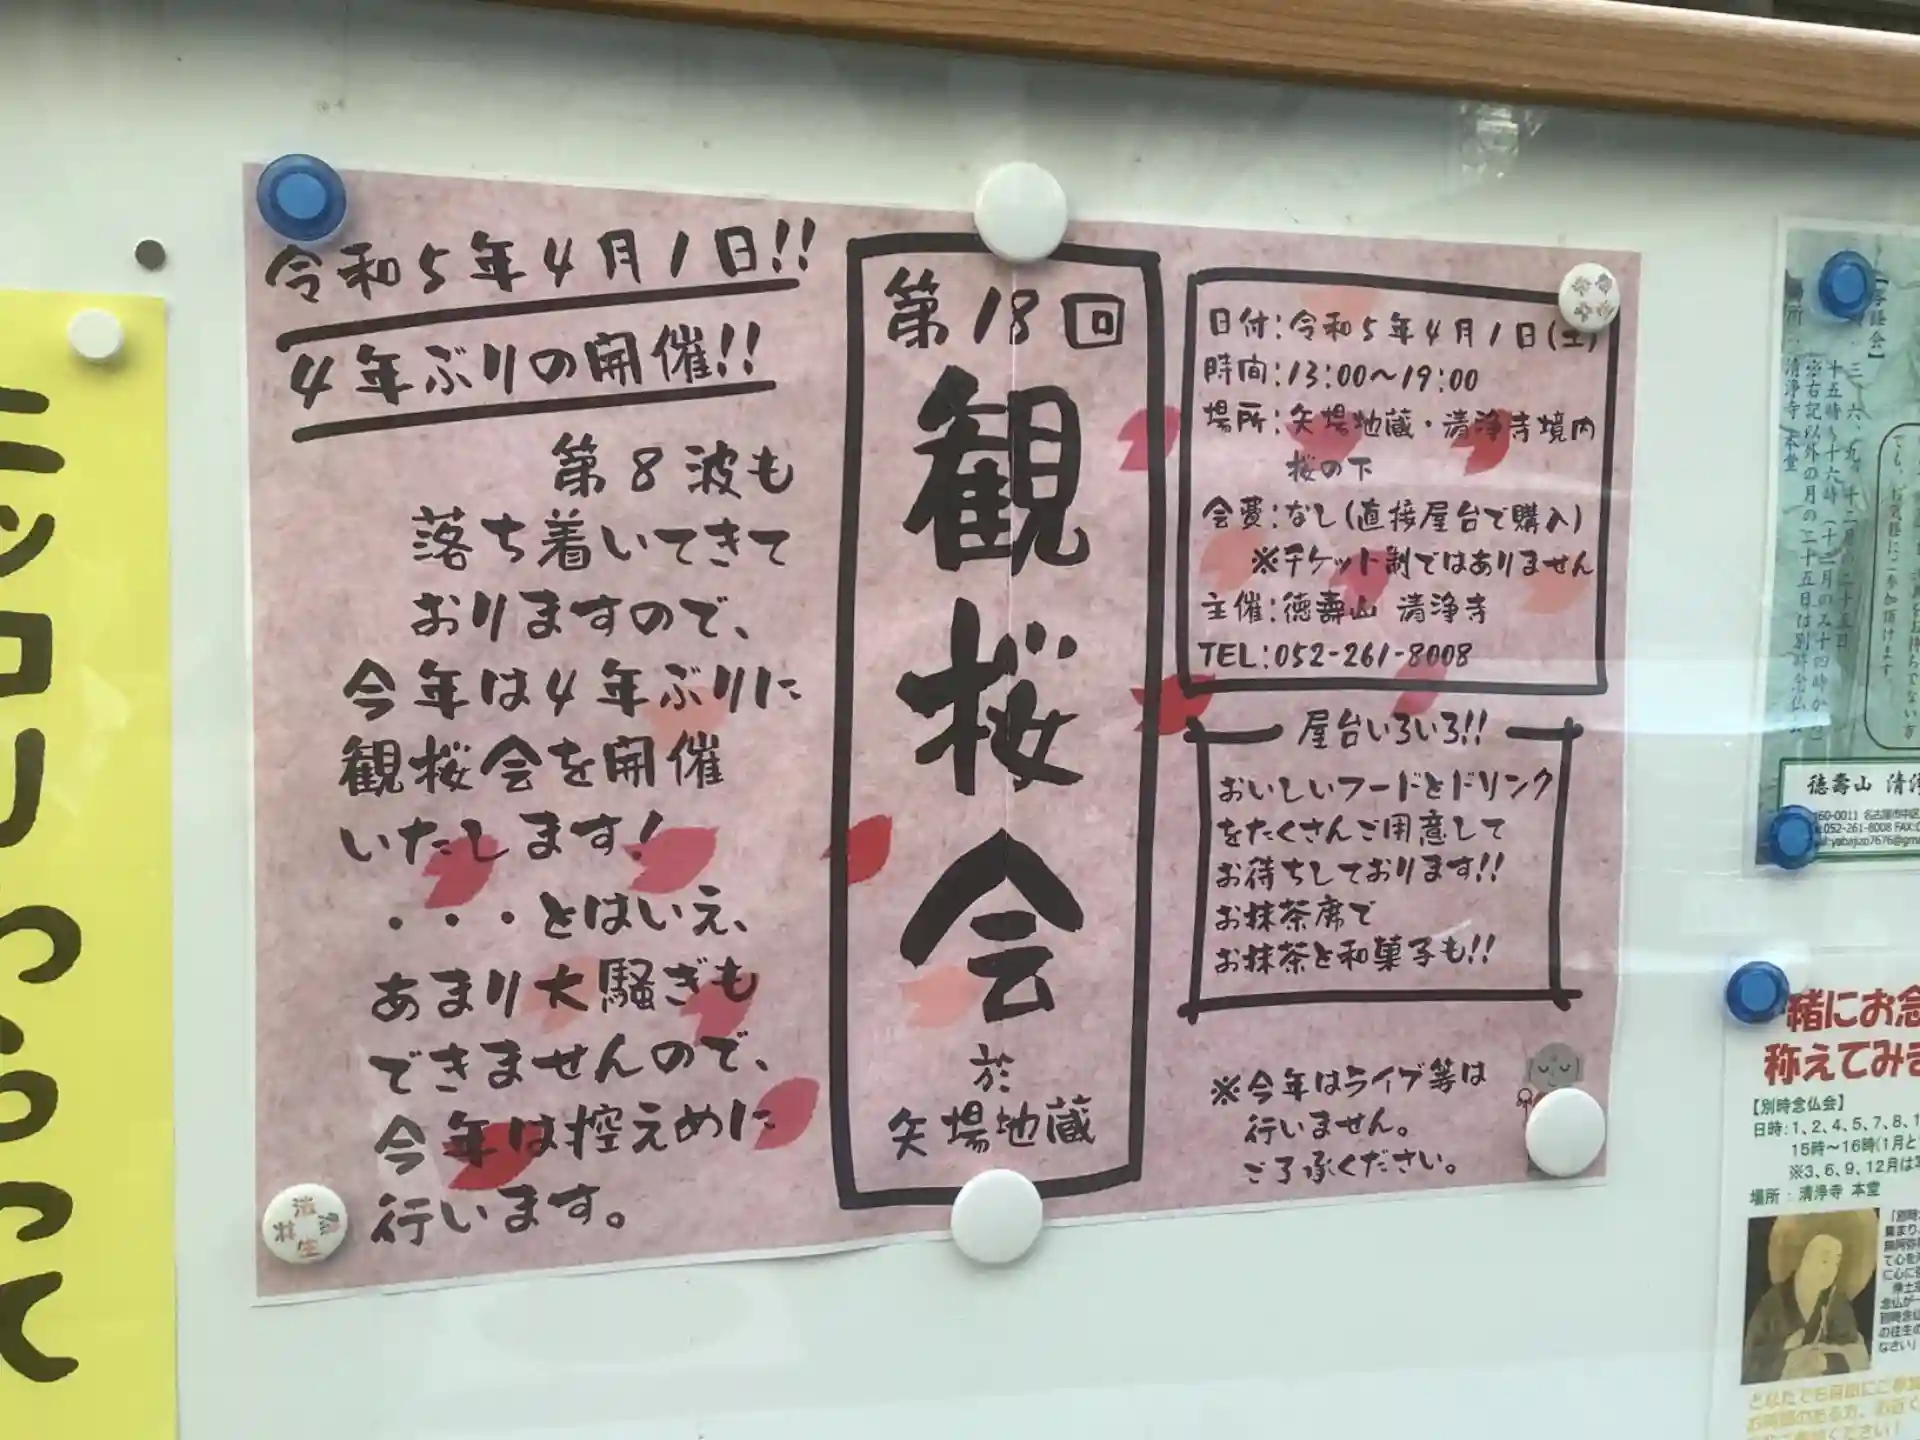 令和5年4月1日!!
4年ぶりの開催!!
第8波も
落ち着いてきて
おりますので、
今年は4年ぶりに
観桜会を開催
いたします!
・・・とはいえ、
あまり大騒ぎも
できませんので、
今年は控えめに
行います。
第18回
観桜会
於
矢場地蔵
日付:令和5年4月1日(土)
時間:13:00〜19:00
場所:矢場地蔵・清浄寺境内
桜の下
会費:なし(直接屋台で購入)
※チケット制ではありません
主催:徳壽山 清浄寺
TEL:052-261-8008
屋台いろいろ!!
おいしいフードとドリンク
をたくさんご用意して
お待ちしております!!
お抹茶席で
お抹茶と和菓子も!!
※今年はライブ等は
行いません。
ご了承ください。
ニッコリわらって
徳壽山 清浄
052-261-8008
緒にお念
称えてみま
【別時念仏会】
日時:1、2、4、5、7、8、1
15時〜16時(1月と
※3、6、9、12月は
場所:清浄寺 本堂